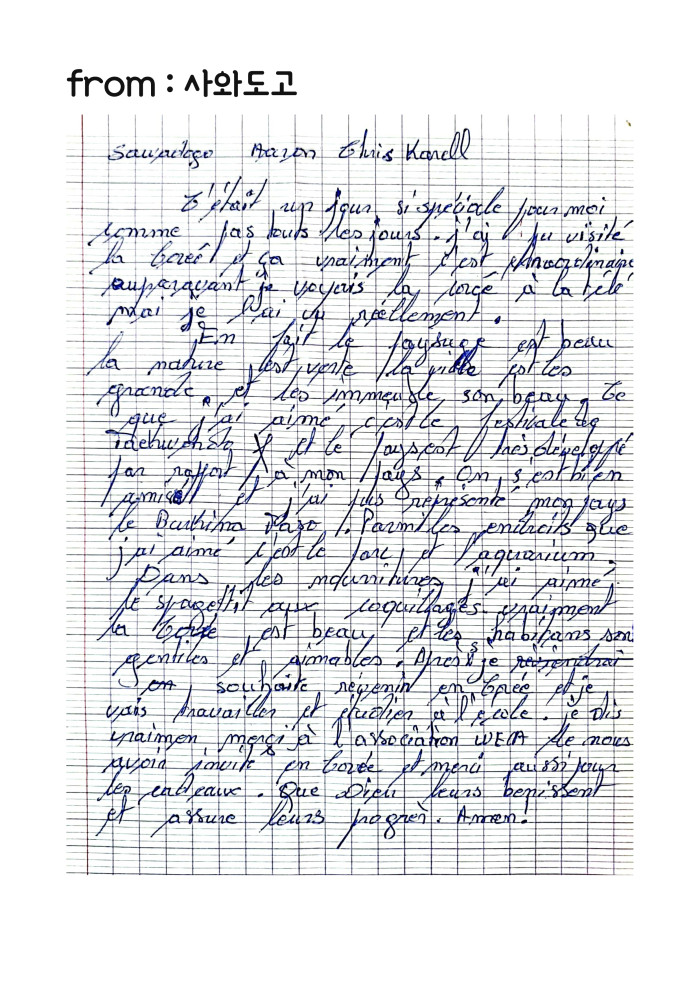 from : 사와도고
Sawadogo Aaron Chris Karell
C'était un jour si spéciale pour moi
comme pas touts les jours. j'ai pu visité
la Coreé et ça vraiment c'est
auparavant je voyais la corgé à la télé
mai je l'ai vu réellement.
En fait le paysage est beau
la nature est verte la ville est les
grande, et les immeuble son beau. Ce
que j'ai aimé c'est le festivale de
Taekwondo et le pays est très dévelopé
par raport à mon pays. On s'est bien
amisé et j'ai pus représenté mon pays
le Burkina Faso. Parmi les endroits que
j'ai aimé c'est le parc et l'aquarium.
Dans les nourritures j'ai aimé
le spagettit aux coquillages. vraiment
la Corée est beau et les habitans son
gentiles et aimables. Après je
souhaite revenir en Corée et je
vais travailler et étudier à l'école. je dis
vraimen merci à l'association WECA de nous
avoir invité en Corée et merci aussi pour
les cadeaux. Que Dieu leurs benissent
et assure leurs progrèr. Amen.